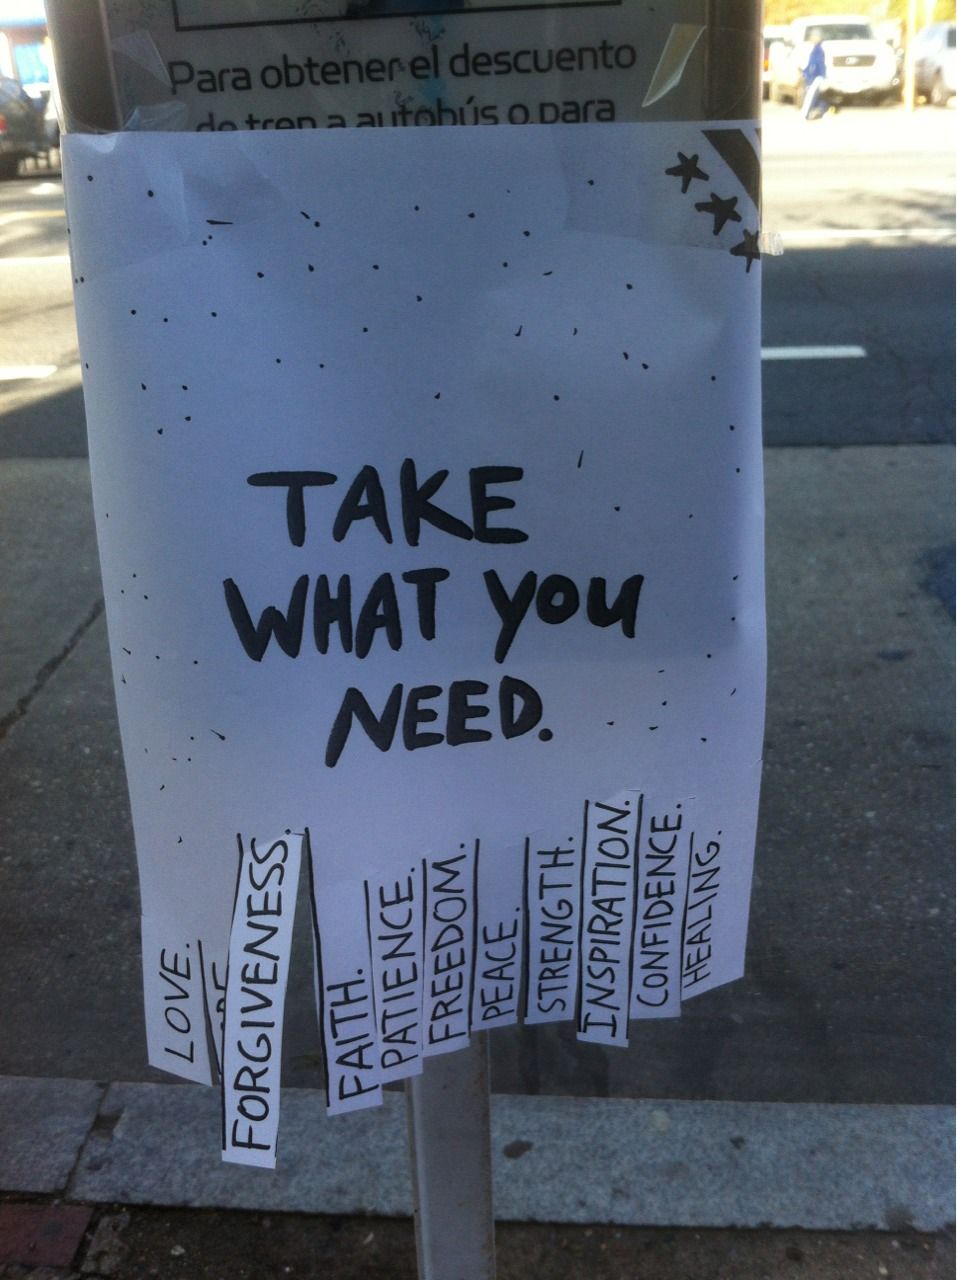 Para obtener el descuento
de tren a autobús o para
TAKE
WHAT YOU
NEED.
LOVE.
FORGIVENESS.
FAITH.
PATIENCE.
FREEDOM.
PEACE.
STRENGTH.
INSPIRATION.
CONFIDENCE.
HEALING.